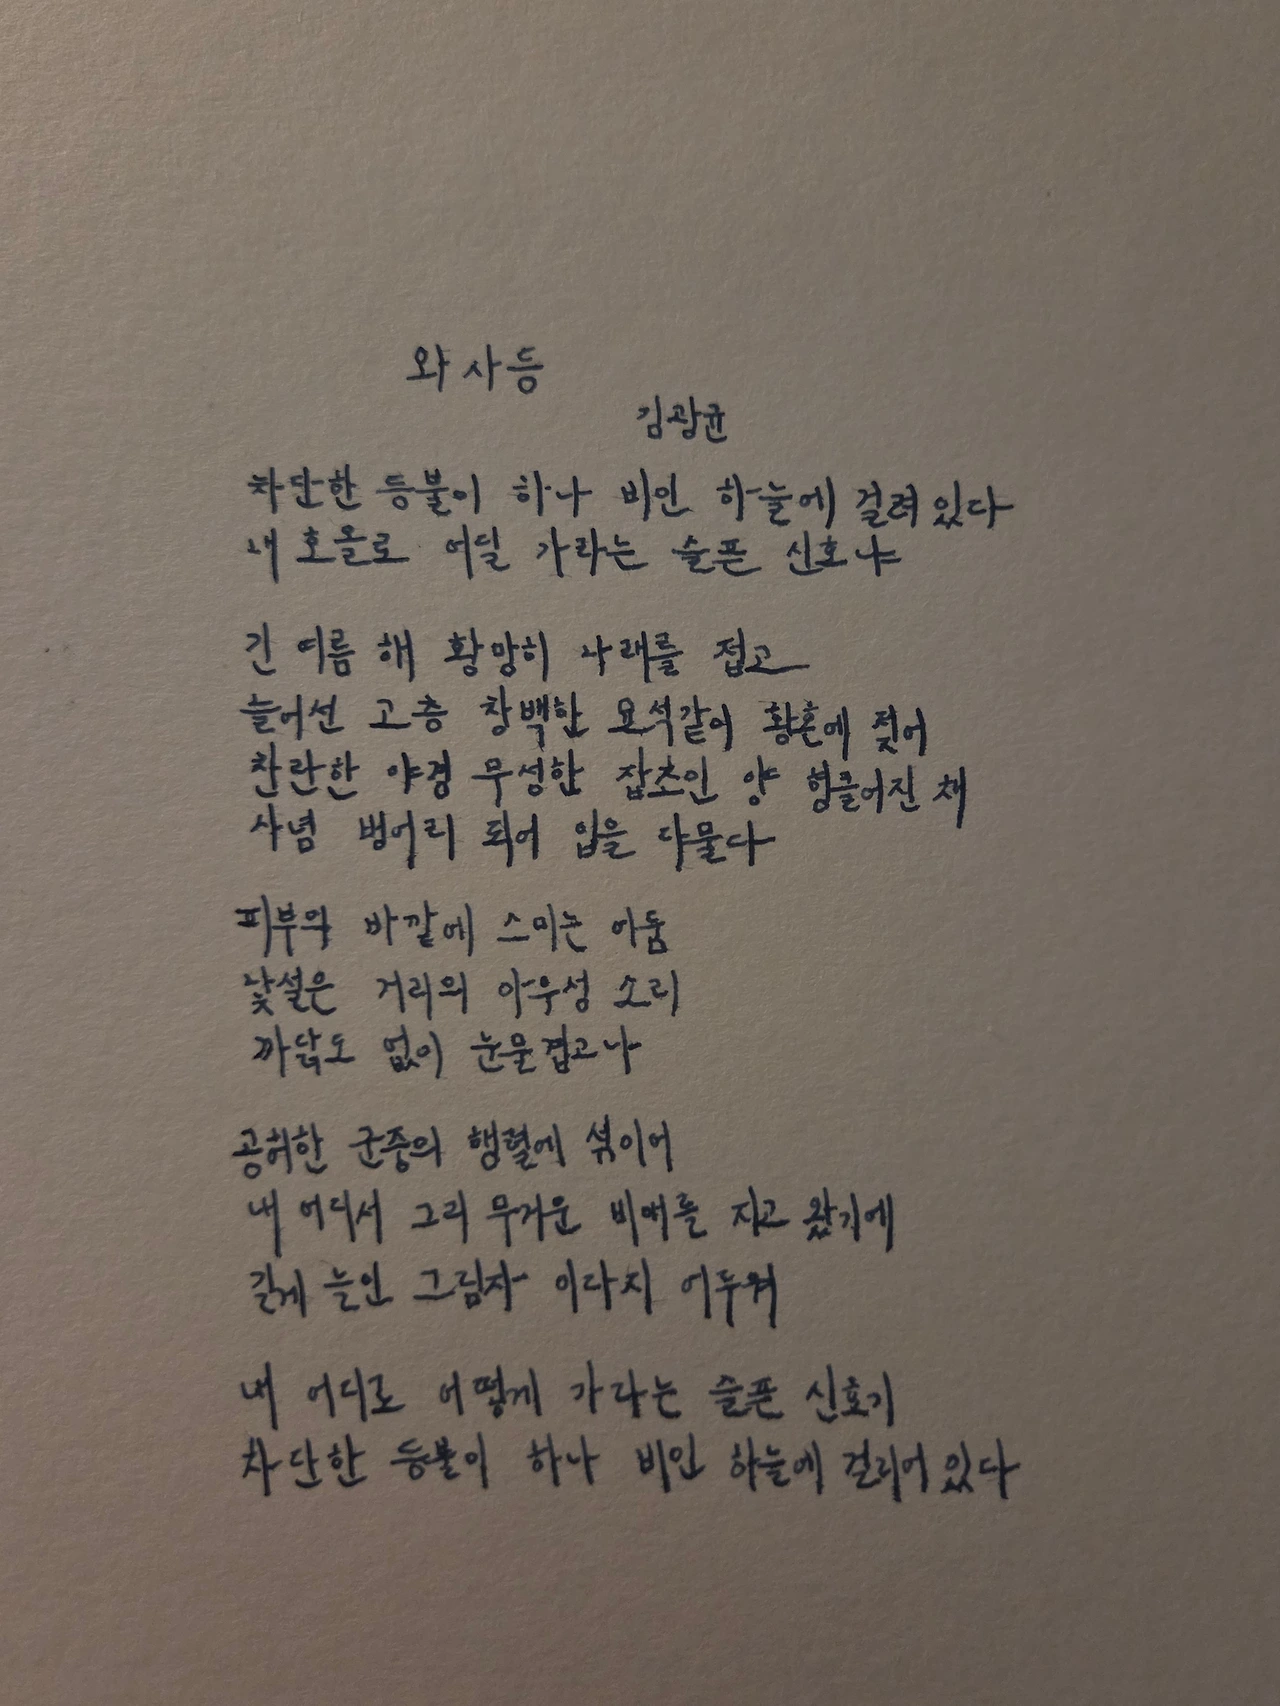 와사등
김광균
차단한 등불이 하나 비인 하늘에 걸려있다
내 호올로 어딜 가라는 슬픈 신호냐
긴 여름 해 황망히 나래를 접고
늘어선 고층 창백한 묘석같이 황혼에 젖어
찬란한 야경 무성한 잡초인 양 헝클어진 채
사념 벙어리 되어 입을 다물다
피부의 바깥에 스미는 어둠
낯설은 거리의 아우성 소리
까닭도 없이 눈물겹고나
공허한 군중의 행렬에 섞이어
내 어디서 그리 무거운 비애를 지고 왔기에
길게 늘인 그림자 이다지 어두워
내 어디로 어떻게 가라는 슬픈 신호기
차단한 등불이 하나 비인 하늘에 걸리어있다